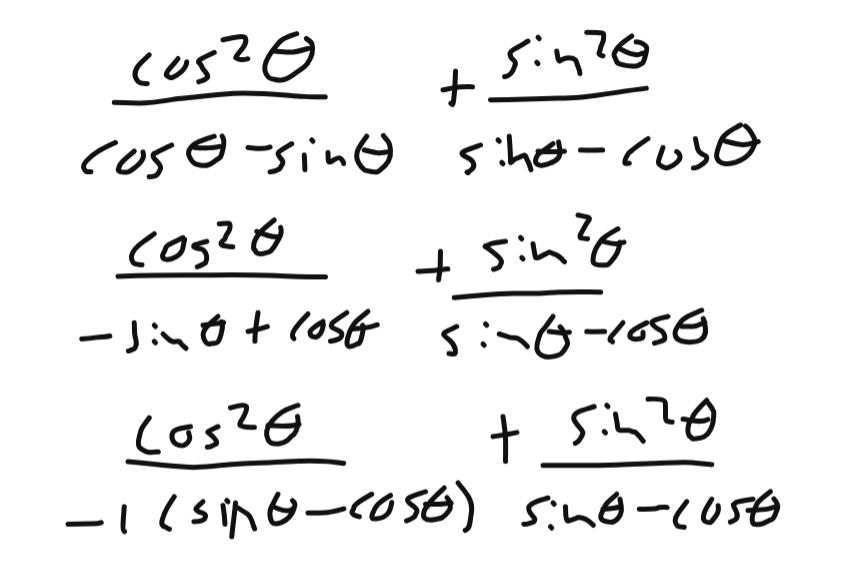 cos²θ/(cosθ - sinθ) + sin²θ/(sinθ - cosθ)
cos²θ/(-sinθ + cosθ) + sin²θ/(sinθ - cosθ)
cos²θ/(-1(sinθ - cosθ)) + sin²θ/(sinθ - cosθ)